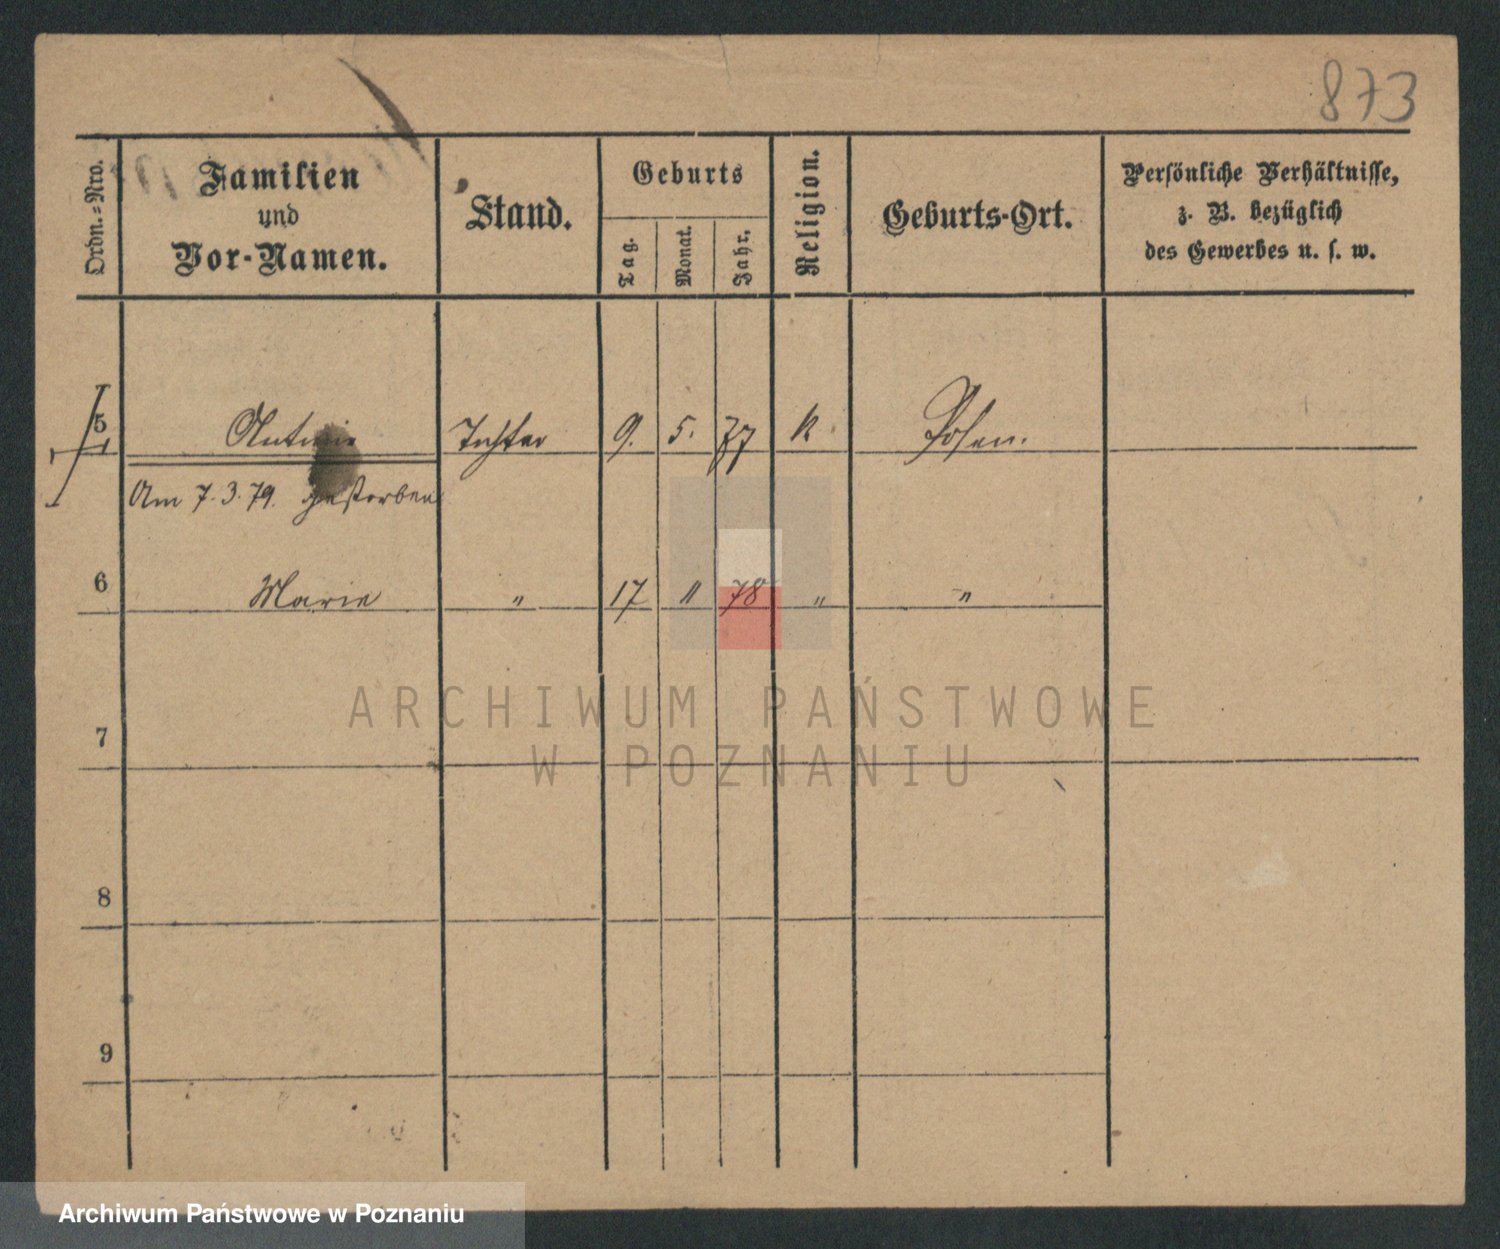 873
Ordn.=Nro.
Familien
und
Vor-Namen.
Stand.
Geburts
Tag.
Monat.
Jahr.
Religion.
Geburts-Ort.
Persönliche Verhältnisse,
z. B. bezüglich
des Gewerbes u. s. w.
5 Antonie Tochter 9. 5. 77 k. Posen.
Am 7.3.79. gestorben
6 Marie " 17 " 78 " "
7
8
9
ARCHIWUM PAŃSTWOWE
W POZNANIU
Archiwum Państwowe w Poznaniu